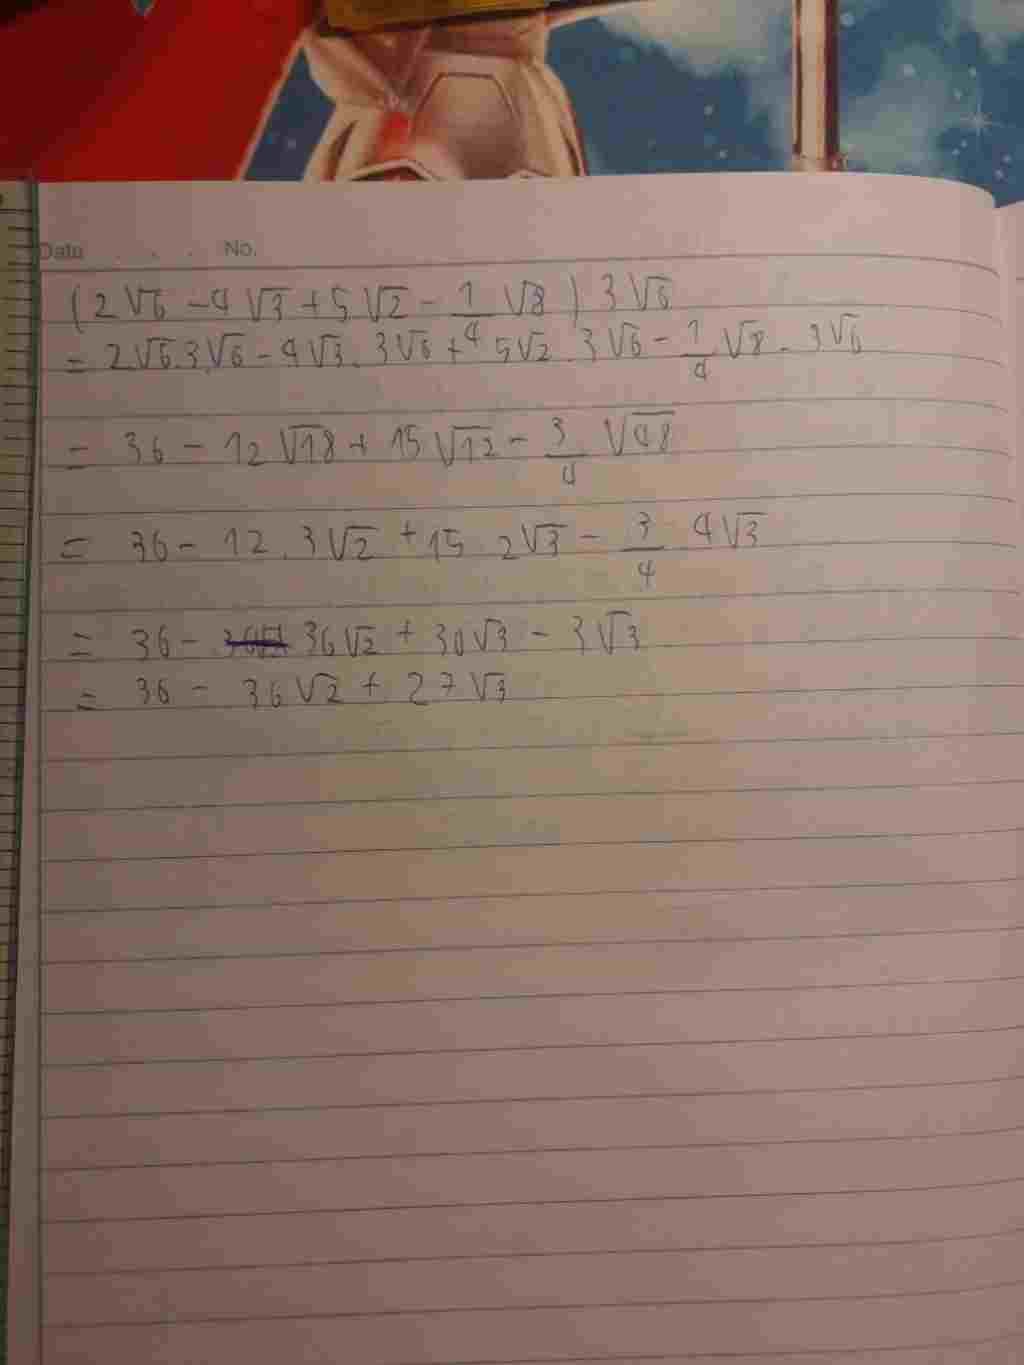 Date . . . No.
(2√6 - 4√3 + 5√2 - 1/4 √8) 3√6
= 2√6.3√6 - 4√3.3√6 + 5√2.3√6 - 1/4 √8.3√6
= 36 - 12√18 + 15√12 - 3/4 √48
= 36 - 12.3√2 + 15.2√3 - 3/4.4√3
= 36 - 36√2 + 30√3 - 3√3
= 36 - 36√2 + 27√3